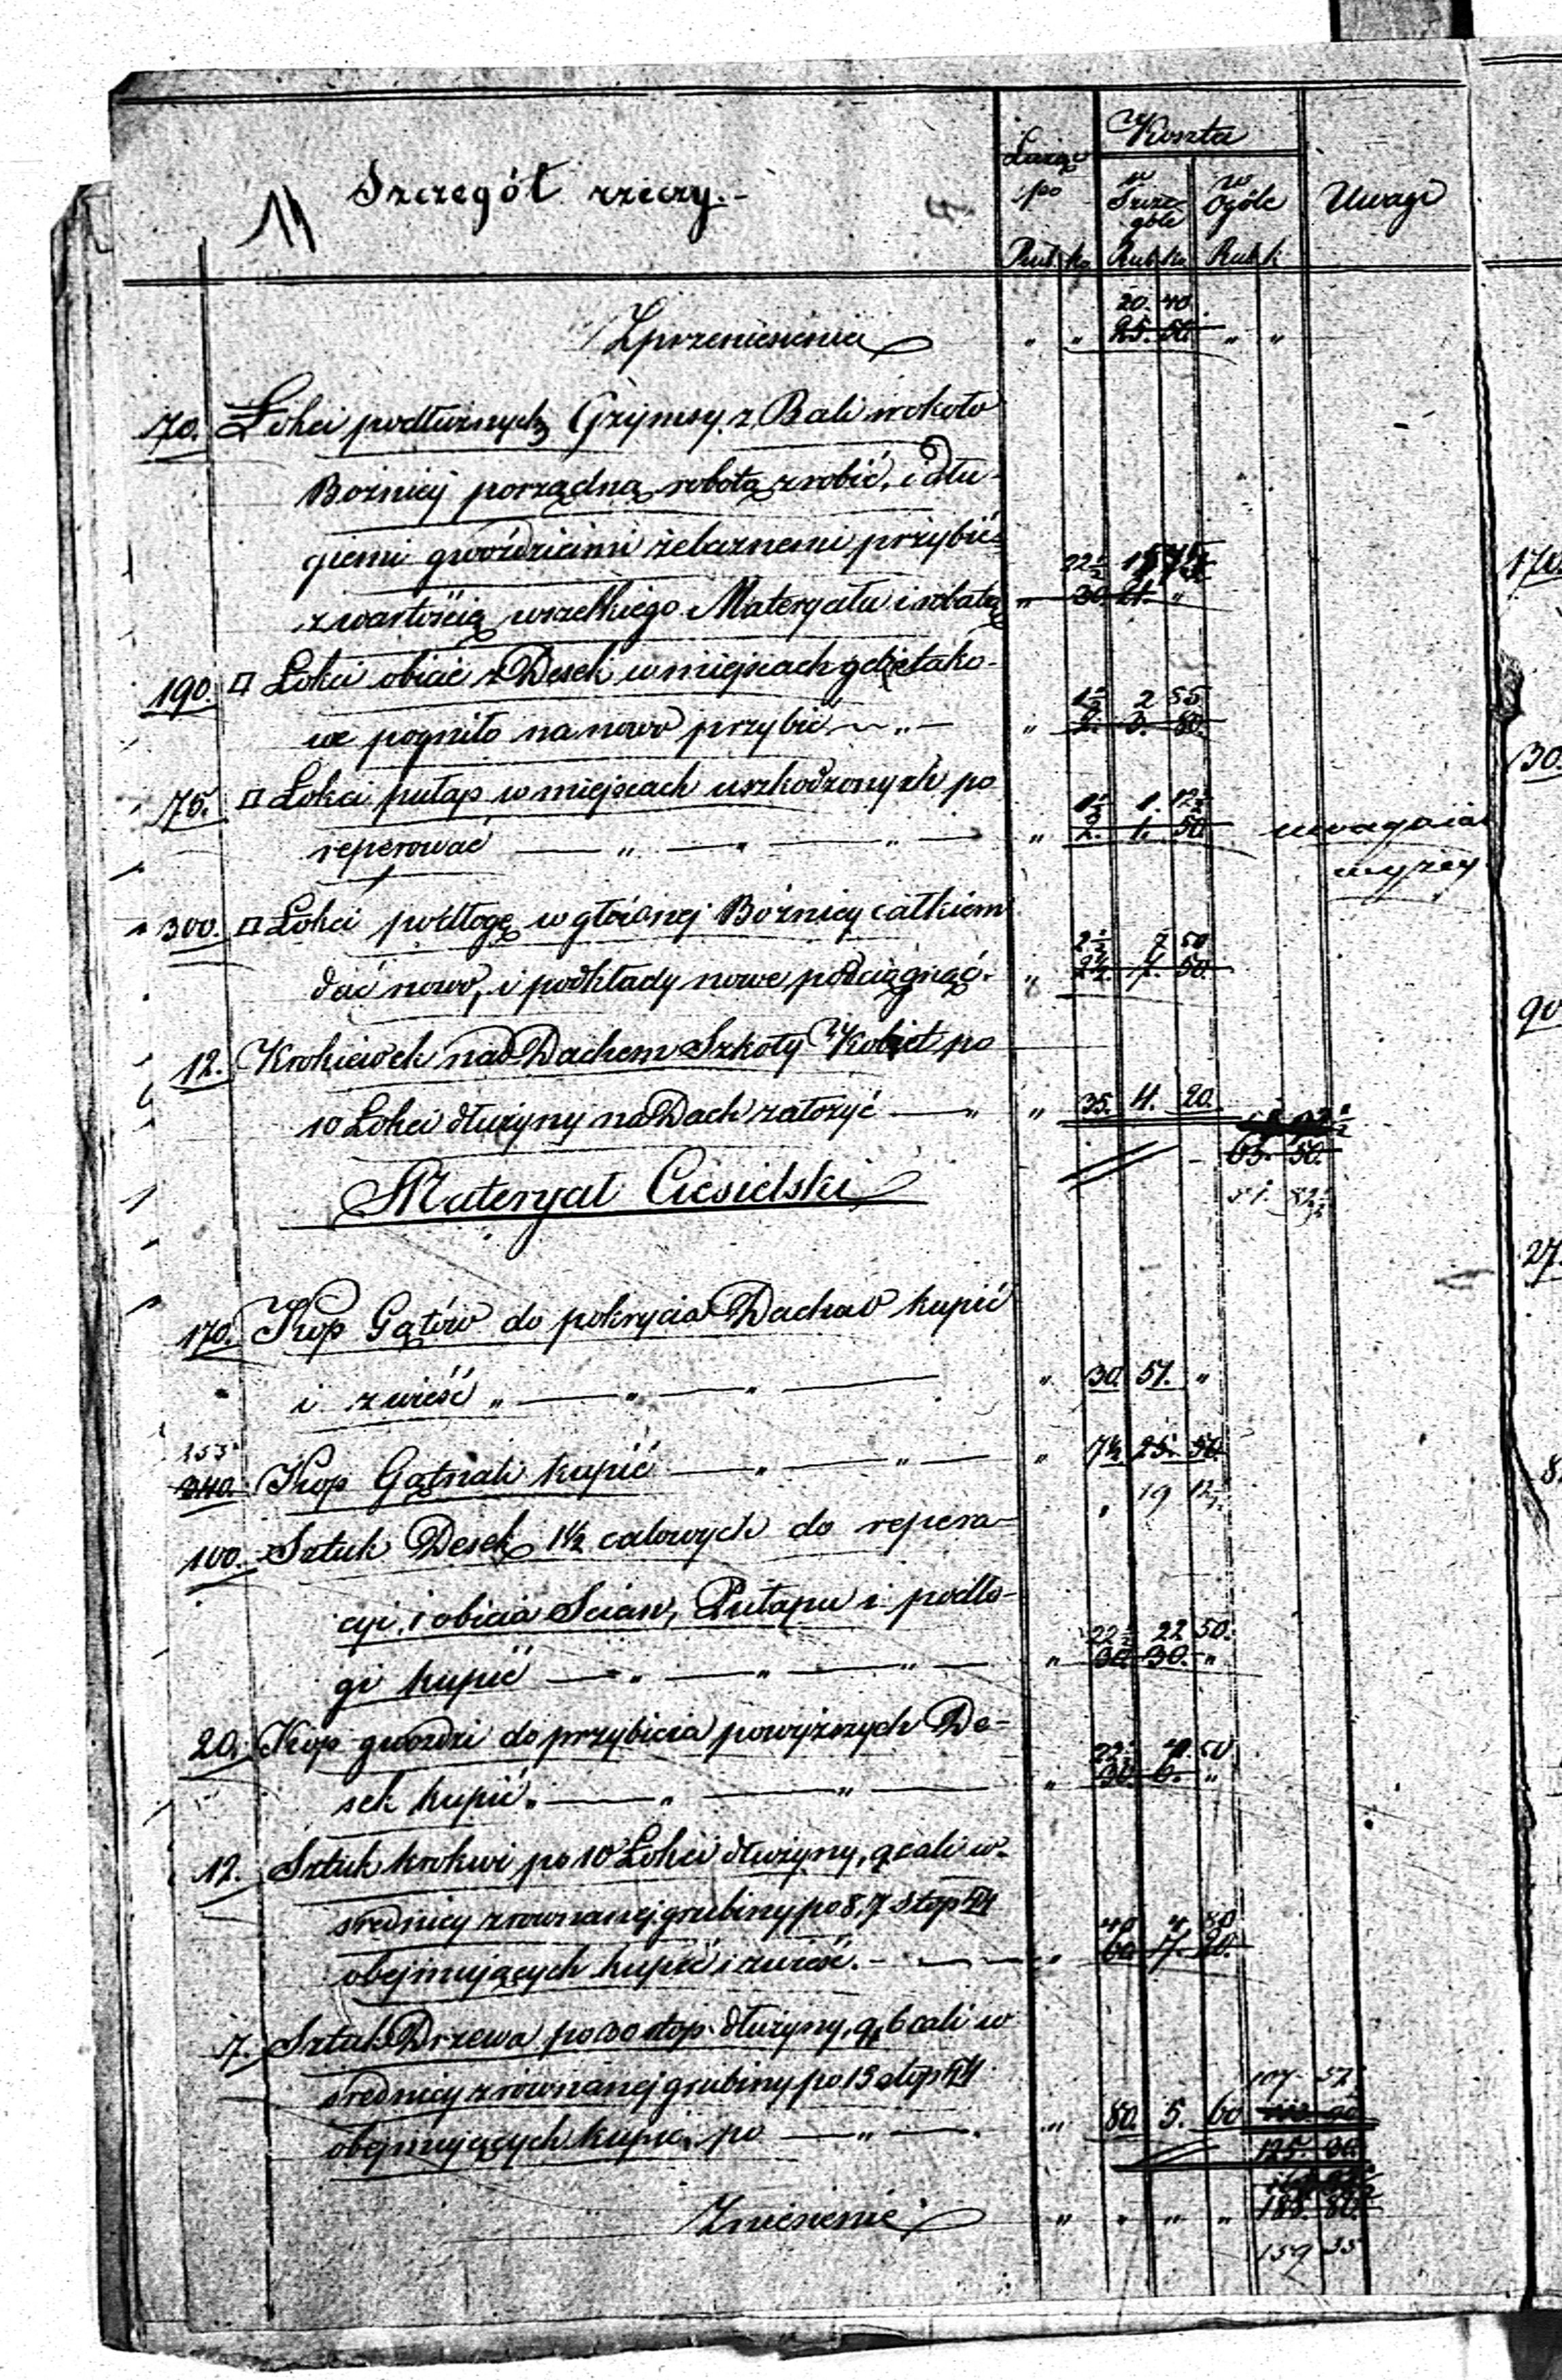 Szczegół rzeczy.-
Liczą po
Koszta
w Szczególe
w Ogóle
Uwagi
Rub. ko.
Rub. ko.
Rub. k.
20. 40.
Zprzeniesienia " " 25. 50. " "
70. Łokci podłużnych Gzymsy z Bali wokoło
Bożnicy porządną robotą zrobić, i dłu-
giemi gwoździami żelaznemi przybić
22½
z wartością wszelkiego Materyału i robotą " 30. 21. "
190. □ Łokci obicie z Desek w miejscach gdzie tako-
1½ 2 85
we pogniło na nowo przybić " 2. 3. 80.
75. □ Łokci pułap w miejscach uszkodzonych po
1½ 1. 12½
reperować " " " " 2. 1. 50
wyżey
300. □ Łokci podłogę w głównej Bożnicy całkiem
2½ 7 50
dać nową, i podkłady nowe podciągnąć. " 2½. 7. 50.
12. Krokiewek nad Dachem Szkoły Kobiet po
10 Łokci dłużyny na Dach założyć " " 35. 4. 20.
63. 50.
51. 82½
Materyał Ciesielski
170. Kop Gątów do pokrycia Dachów kupić
i zwieść " " " " 30 51. "
153
340. Kop Gątnali kupić " " " 7½ 25. 50.
19 12½
100. Sztuk Desek 1½ calowych do repera-
cyi, i obicia Scian, Pułapu i podło-
22½ 22 50.
gi kupić " " " " 30. 30. "
20. Kop gwoździ do przybicia powyższych De-
22½ 4. 50
sek kupić " " " " 30. 6. "
12. Sztuk krokwi po 10 Łokci dłużyny, 9 cali w
średnicy zrównanej grubiny po 8,7 stop
40 4. 80
obejmujących kupić i zwieść. " 60 7. 20.
7. Sztuk Drzewa po 30 stop dłużyny, 9,6 cali w
średnicy zrównanej grubiny po 13 stop
107 52½
obejmujących kupić, po " " 80. 5. 60
125. 30.
Zniesienie " " " " 188. 80.
159 35